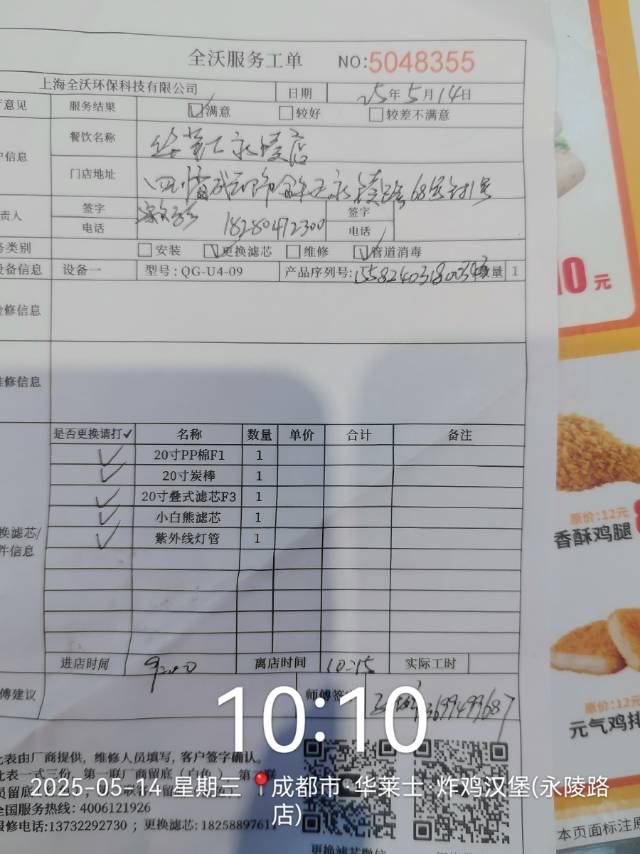 全沃服务工单 NO:5048355
上海全沃环保科技有限公司 日期 25年5月14日
意见 服务结果 ☑满意 □较好 □较差不满意
户信息 餐饮名称 华莱士永陵店
门店地址
责人 签字 签字
电话 18280472300 电话
务类别 □安装 ☑更换滤芯 □维修 ☑管道消毒
设备信息 设备一 型号:QG-U4-09 产品序列号: 数量 1
检修信息
维修信息
是否更换请打✓ 名称 数量 单价 合计 备注
✓ 20寸PP棉F1 1
✓ 20寸炭棒 1
✓ 20寸叠式滤芯F3 1
✓ 小白熊滤芯 1
✓ 紫外线灯管 1
换滤芯/
件信息
进店时间 9:00 离店时间 10:15 实际工时
师傅建议 师傅签
10:10
此表由厂商提供，维修人员填写，客户签字确认。
比表一式三份，第一联厂商留底（白色）
2025-05-14 星期三 成都市·华莱士·炸鸡汉堡(永陵路店)
全国服务热线: 4006121926
维修电话:13732292730 ; 更换滤芯: 1825889761
更换滤芯微信
10元
原价:12元
香酥鸡腿
原价:12元
元气鸡排
本页面标注原